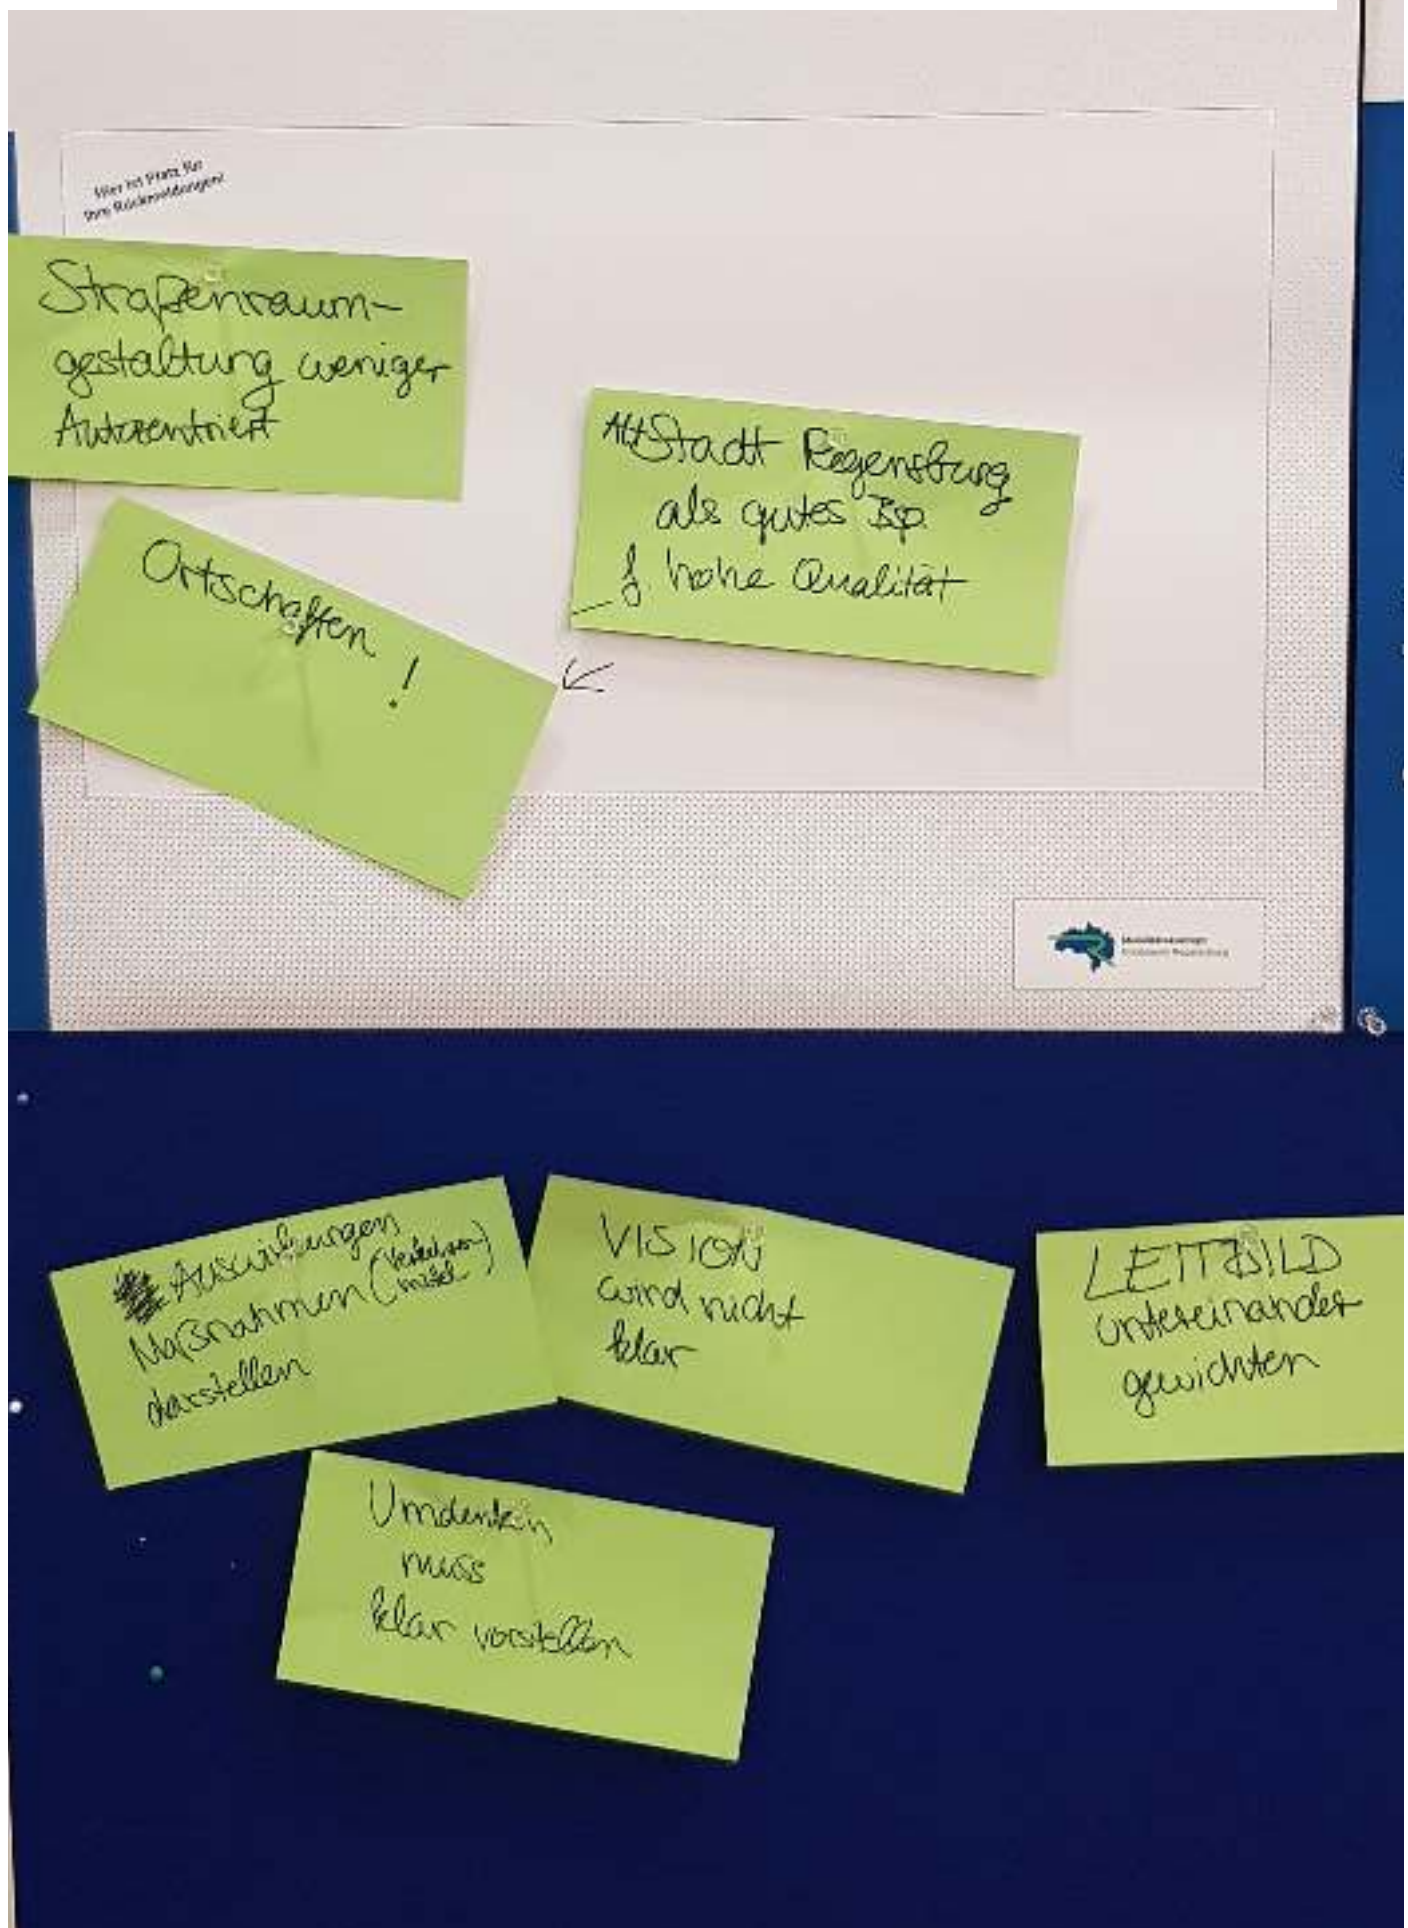 Hier ist Platz für
Ihre Rückmeldungen!
Straßenraum-
gestaltung weniger
Autozentriert
AltStadt Regensburg
als gutes Bsp.
f. hohe Qualität
Ortschaften !
Auswirkungen
Maßnahmen (Verkehrs-
mittel)
darstellen
VISION
wird nicht
klar
LEITBILD
untereinander
gewichten
Umdenken
muss
klar vorstellen